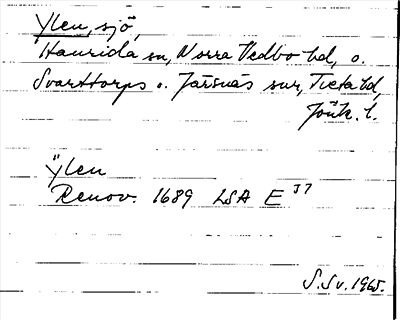 Ylen, sjö,
Haurida sn, Norra Vedbo hd, o.
Svarttorps o. Järsnäs snr, Tveta hd,
Jönk. l.
Ÿlen
Renov. 1689 LSA E 37
S. Sv. 1965.